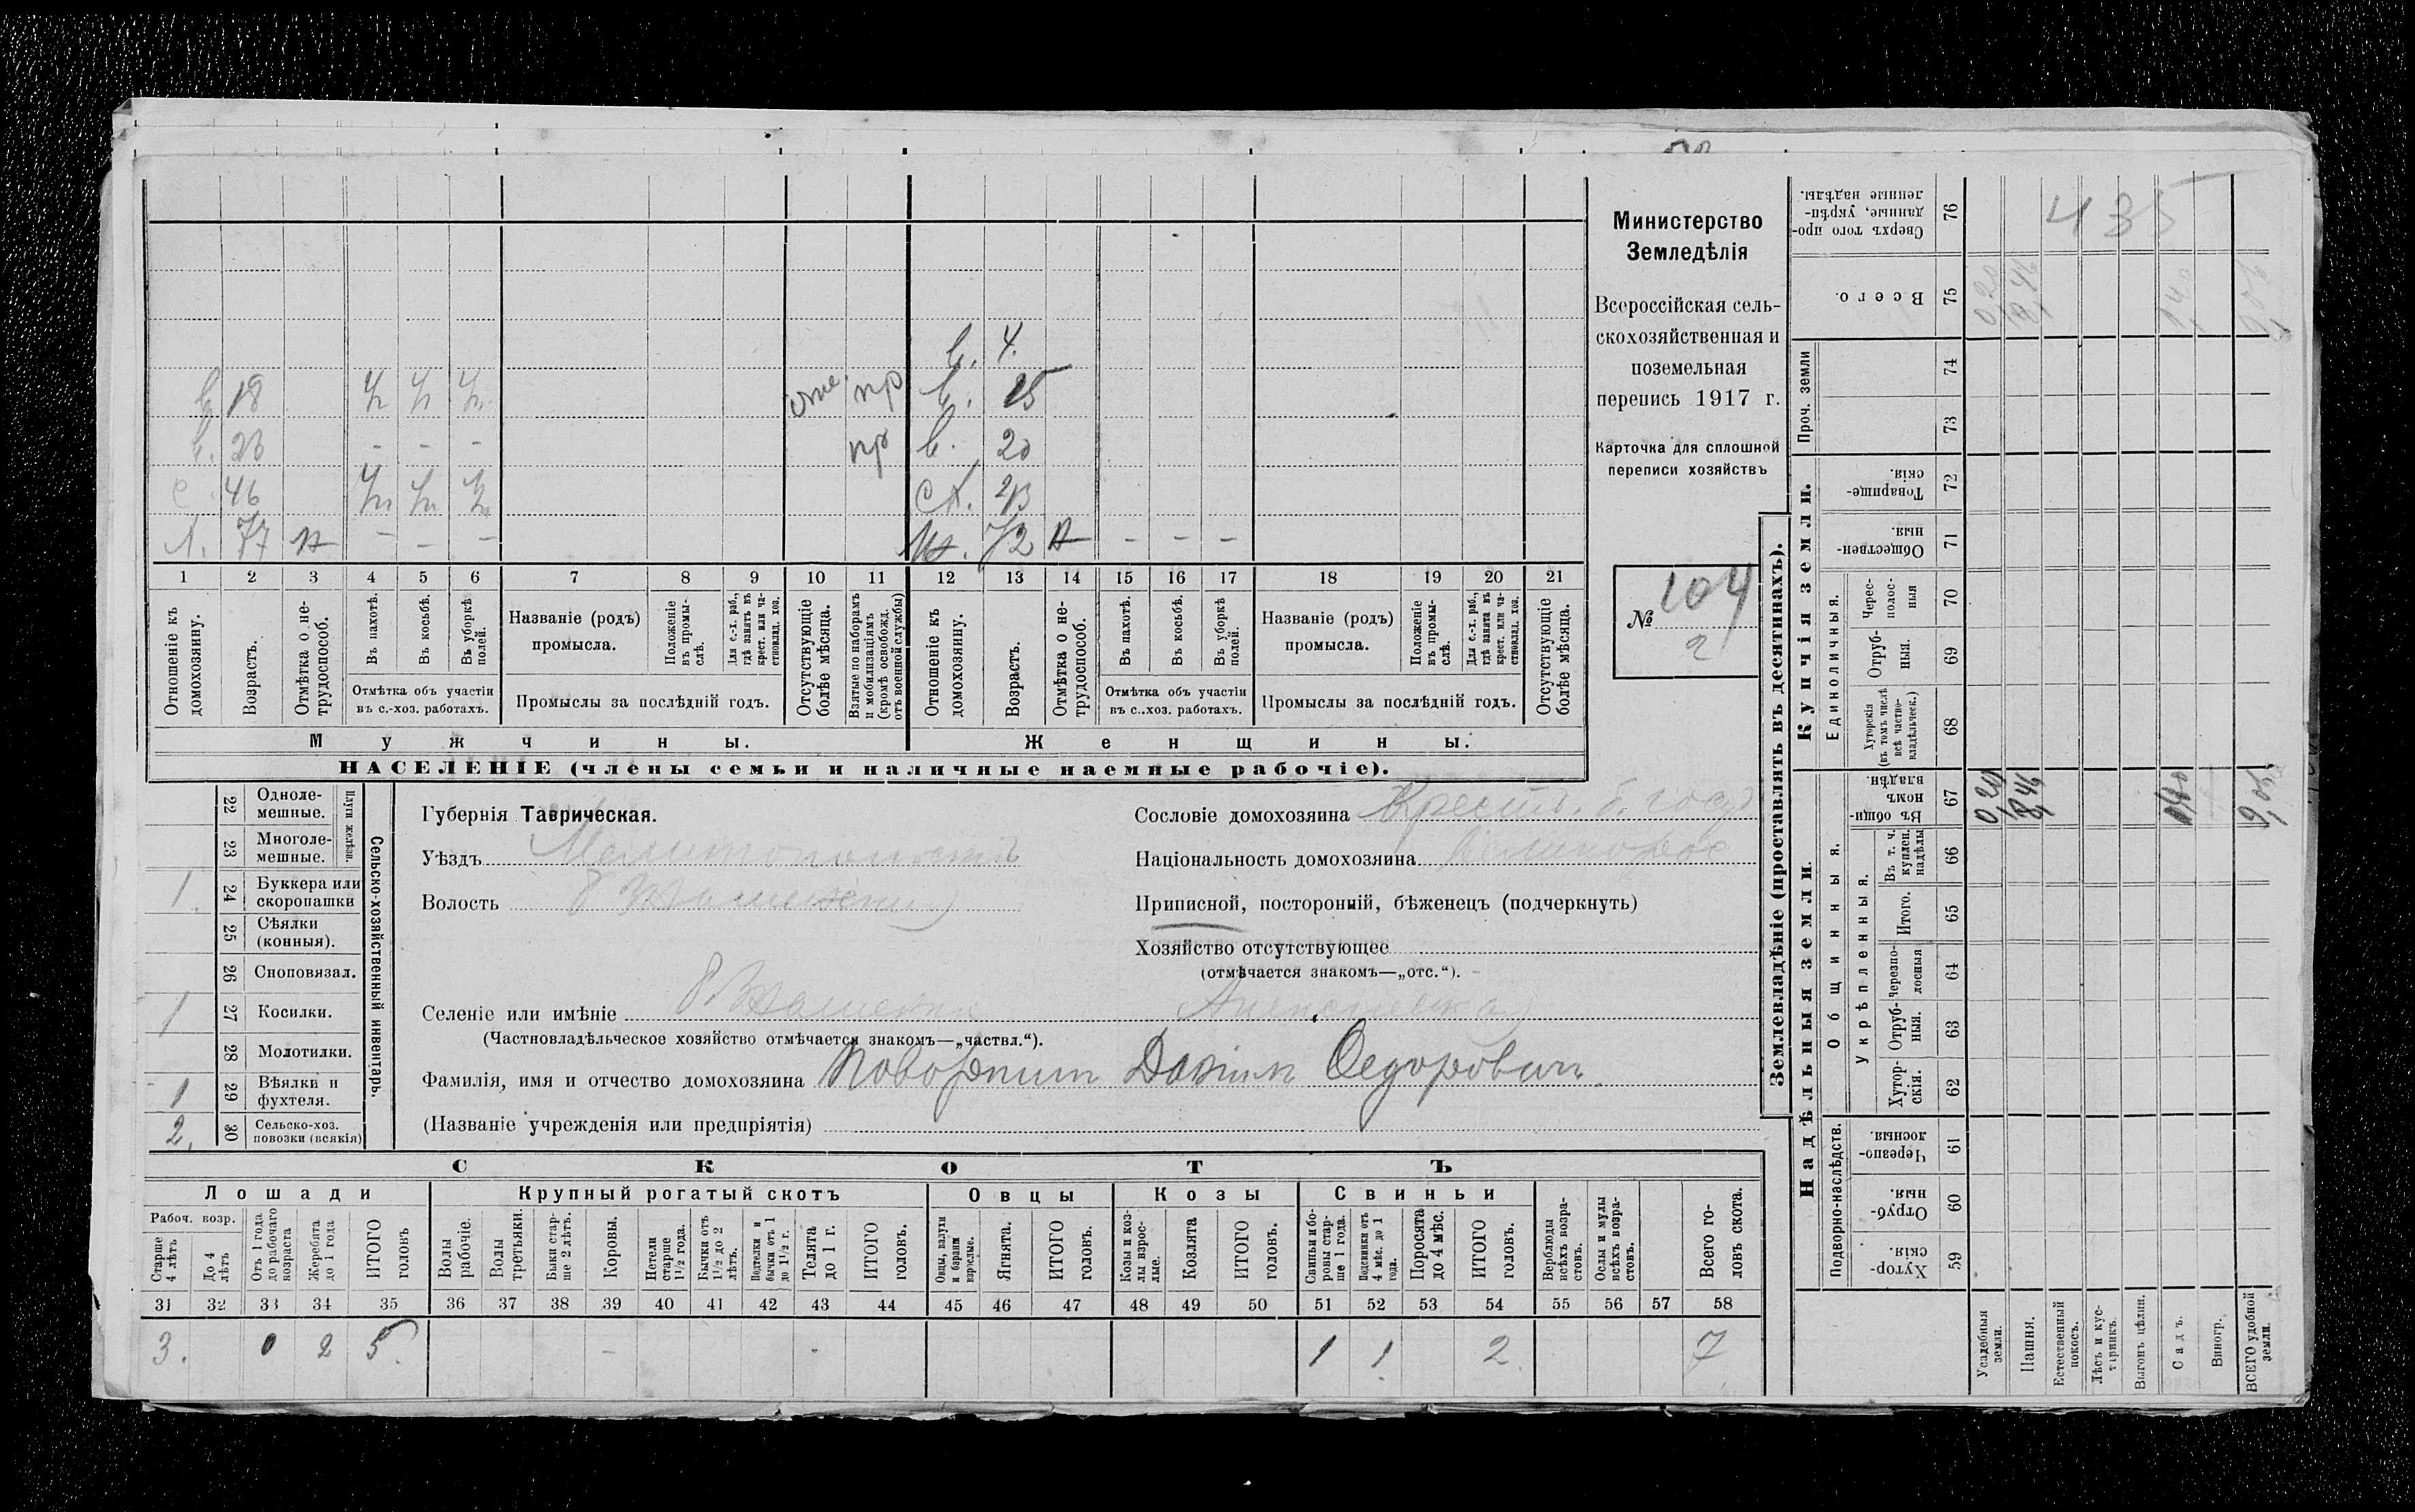 435
Министерство
Земледѣлія
Всероссійская сель-
скохозяйственная и
поземельная
перепись 1917 г.
Карточка для сплошной
переписи хозяйствъ
№ 104
2
в. 4.
18 отс. пр в. 15
в. 23 - - - пр в. 20
с 46 сн. 23
77 н - - - 72 н - - -
1 2 3 4 5 6 7 8 9 10 11 12 13 14 15 16 17 18 19 20 21
Отношеніе къ домохозяину.
Возрастъ.
Отмѣтка о не-трудоспособ.
Въ пахотѣ.
Въ косьбѣ.
Въ уборкѣ полей.
Отмѣтка объ участіи
въ с.-хоз. работахъ.
Названіе (родъ)
промысла.
Положеніе въ промы-слѣ.
Для с.-х. раб., гдѣ занятъ въ крест. или ча-стновлад. хоз.
Промыслы за послѣдній годъ.
Отсутствующіе болѣе мѣсяца.
Взятые по наборамъ и мобилизаціямъ (кромѣ освобожд. отъ военной службы)
Отношеніе къ домохозяину.
Возрастъ.
Отмѣтка о не-трудоспособ.
Въ пахотѣ.
Въ косьбѣ.
Въ уборкѣ полей.
Отмѣтка объ участіи
въ с..хоз. работахъ.
Названіе (родъ)
промысла.
Положеніе въ промы-слѣ.
Для с.-х. раб., гдѣ занята въ крест. или ча-стновлад. хоз.
Промыслы за послѣдній годъ.
Отсутствующіе болѣе мѣсяца.
Мужчины.
Женщины.
НАСЕЛЕНІЕ (члены семьи и наличные наемные рабочіе).
Сельско-хозяйственный инвентарь.
Плуги желѣзн.
22 Одноле-мешные.
23 Многоле-мешные.
1. 24 Буккера или скоропашки
25 Сѣялки (конныя).
26 Сноповязал.
1 27 Косилки.
28 Молотилки.
1 29 Вѣялки и фухтеля.
2. 30 Сельско-хоз. повозки (всякія)
Губернія Таврическая.
Уѣздъ Мелитопольскій
Волость
Сословіе домохозяина Крест. б. госуд
Національность домохозяина Великорос
Приписной, посторонній, бѣженецъ (подчеркнуть)
Хозяйство отсутствующее
(отмѣчается знакомъ—„отс.“).
Селеніе или имѣніе
(Частновладѣльческое хозяйство отмѣчается знакомъ—„частвл.“).
Фамилія, имя и отчество домохозяина Федоровичъ
(Названіе учрежденія или предпріятія)
СКОТЪ
Лошади
Крупный рогатый скотъ
Овцы
Козы
Свиньи
Рабоч. возр.
Старше 4 лѣтъ
До 4 лѣтъ
Отъ 1 года до рабочаго возраста
Жеребята до 1 года
ИТОГО головъ
Волы рабочіе.
Волы третьяки.
Быки стар-ше 2 лѣтъ.
Коровы.
Нетели старше 1 1/2 года.
Бычки отъ 1 1/2 до 2 лѣтъ.
Подтелки и бычки отъ 1 до 1 1/2 г.
Телята до 1 г.
ИТОГО головъ.
Овцы, валухи и бараны взрослые.
Ягнята.
ИТОГО головъ.
Козы и коз-лы взрос-лые.
Козлята
ИТОГО головъ.
Свиньи и бо-ровы стар-ше 1 года.
Подсвинки отъ 4 мѣс. до 1 года.
Поросята до 4 мѣс.
ИТОГО головъ.
Верблюды всѣхъ возра-стовъ.
Ослы и мулы всѣхъ возра-стовъ.
Всего го-ловъ скота.
31 32 33 34 35 36 37 38 39 40 41 42 43 44 45 46 47 48 49 50 51 52 53 54 55 56 57 58
3. 0 2 5. - - 1 1 2. 7
Землевладѣніе (проставлять въ десятинахъ).
Надѣльныя земли.
Купчія земли.
Подворно-наслѣдств.
Общинныя.
Укрѣпленныя.
Единоличныя.
Проч. земли
59 Хутор-скія.
60 Отруб-ныя.
61 Черезпо-лосныя.
62 Хутор-скія.
63 Отруб-ныя.
64 Черезпо-лосныя
65 Итого.
66 Въ т. ч. куплен. надѣлы
67 Въ общи-номъ владѣн.
68 Хуторскія (въ томъ числѣ всѣ частно-владѣльческ.)
69 Отруб-ныя.
70 Черес-полос-ныя
71 Обществен-ныя.
72 Товарище-скія.
73
74
75 Всего.
76 Сверхъ того про-данные, укрѣп-ленные надѣлы.
Усадебныя земли. 0,20 0,20
Пашня. 8,46 8,46
Естественный покосъ.
Лѣсъ и кус-тарникъ.
Выгонъ цѣлин.
Садъ.
Виногр.
ВСЕГО удобной земли.